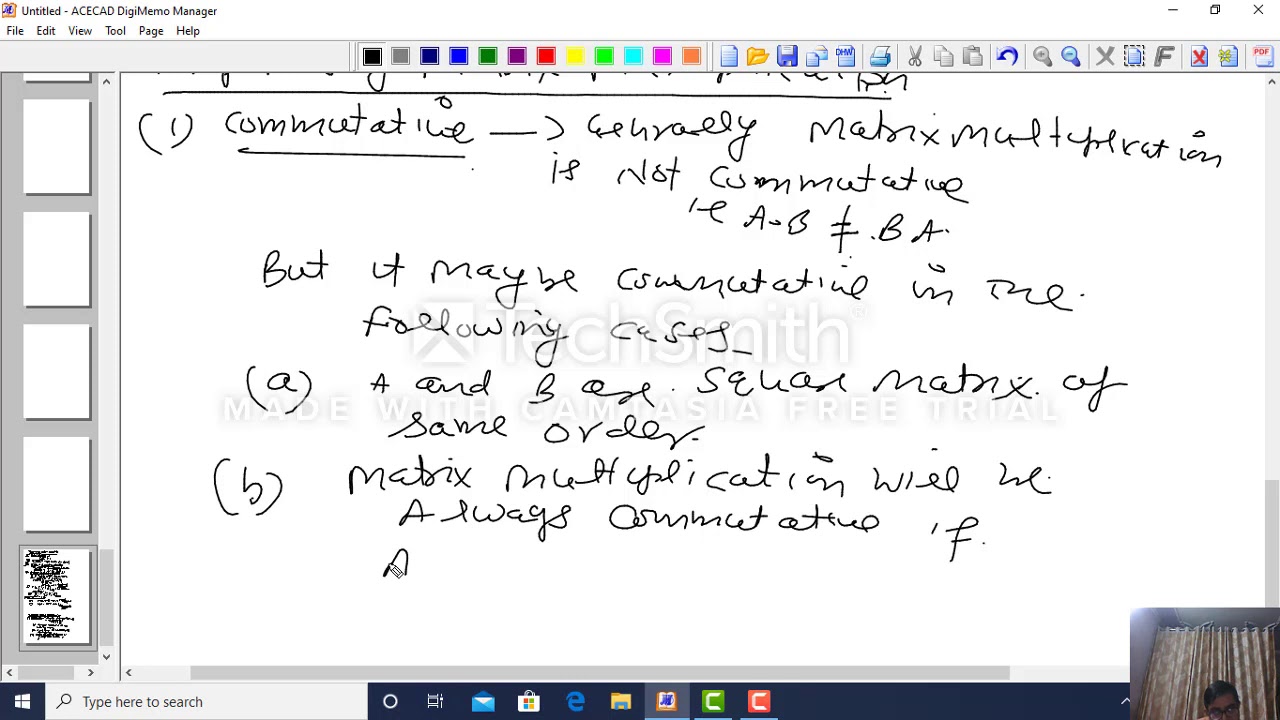 Untitled - ACECAD DigiMemo Manager
File Edit View Tool Page Help
(1) Commutative → Generally Matrix Multiplication
is Not Commutative
ie A.B ≠ .B A.
But it may be commutative in the
following cases_
TechSmith®
(a) A and B are square Matrix of
MADE WITH CAMTASIA FREE TRIAL
same order.
(b) Matrix Multiplication will be
Always Commutative if.
A
Type here to search